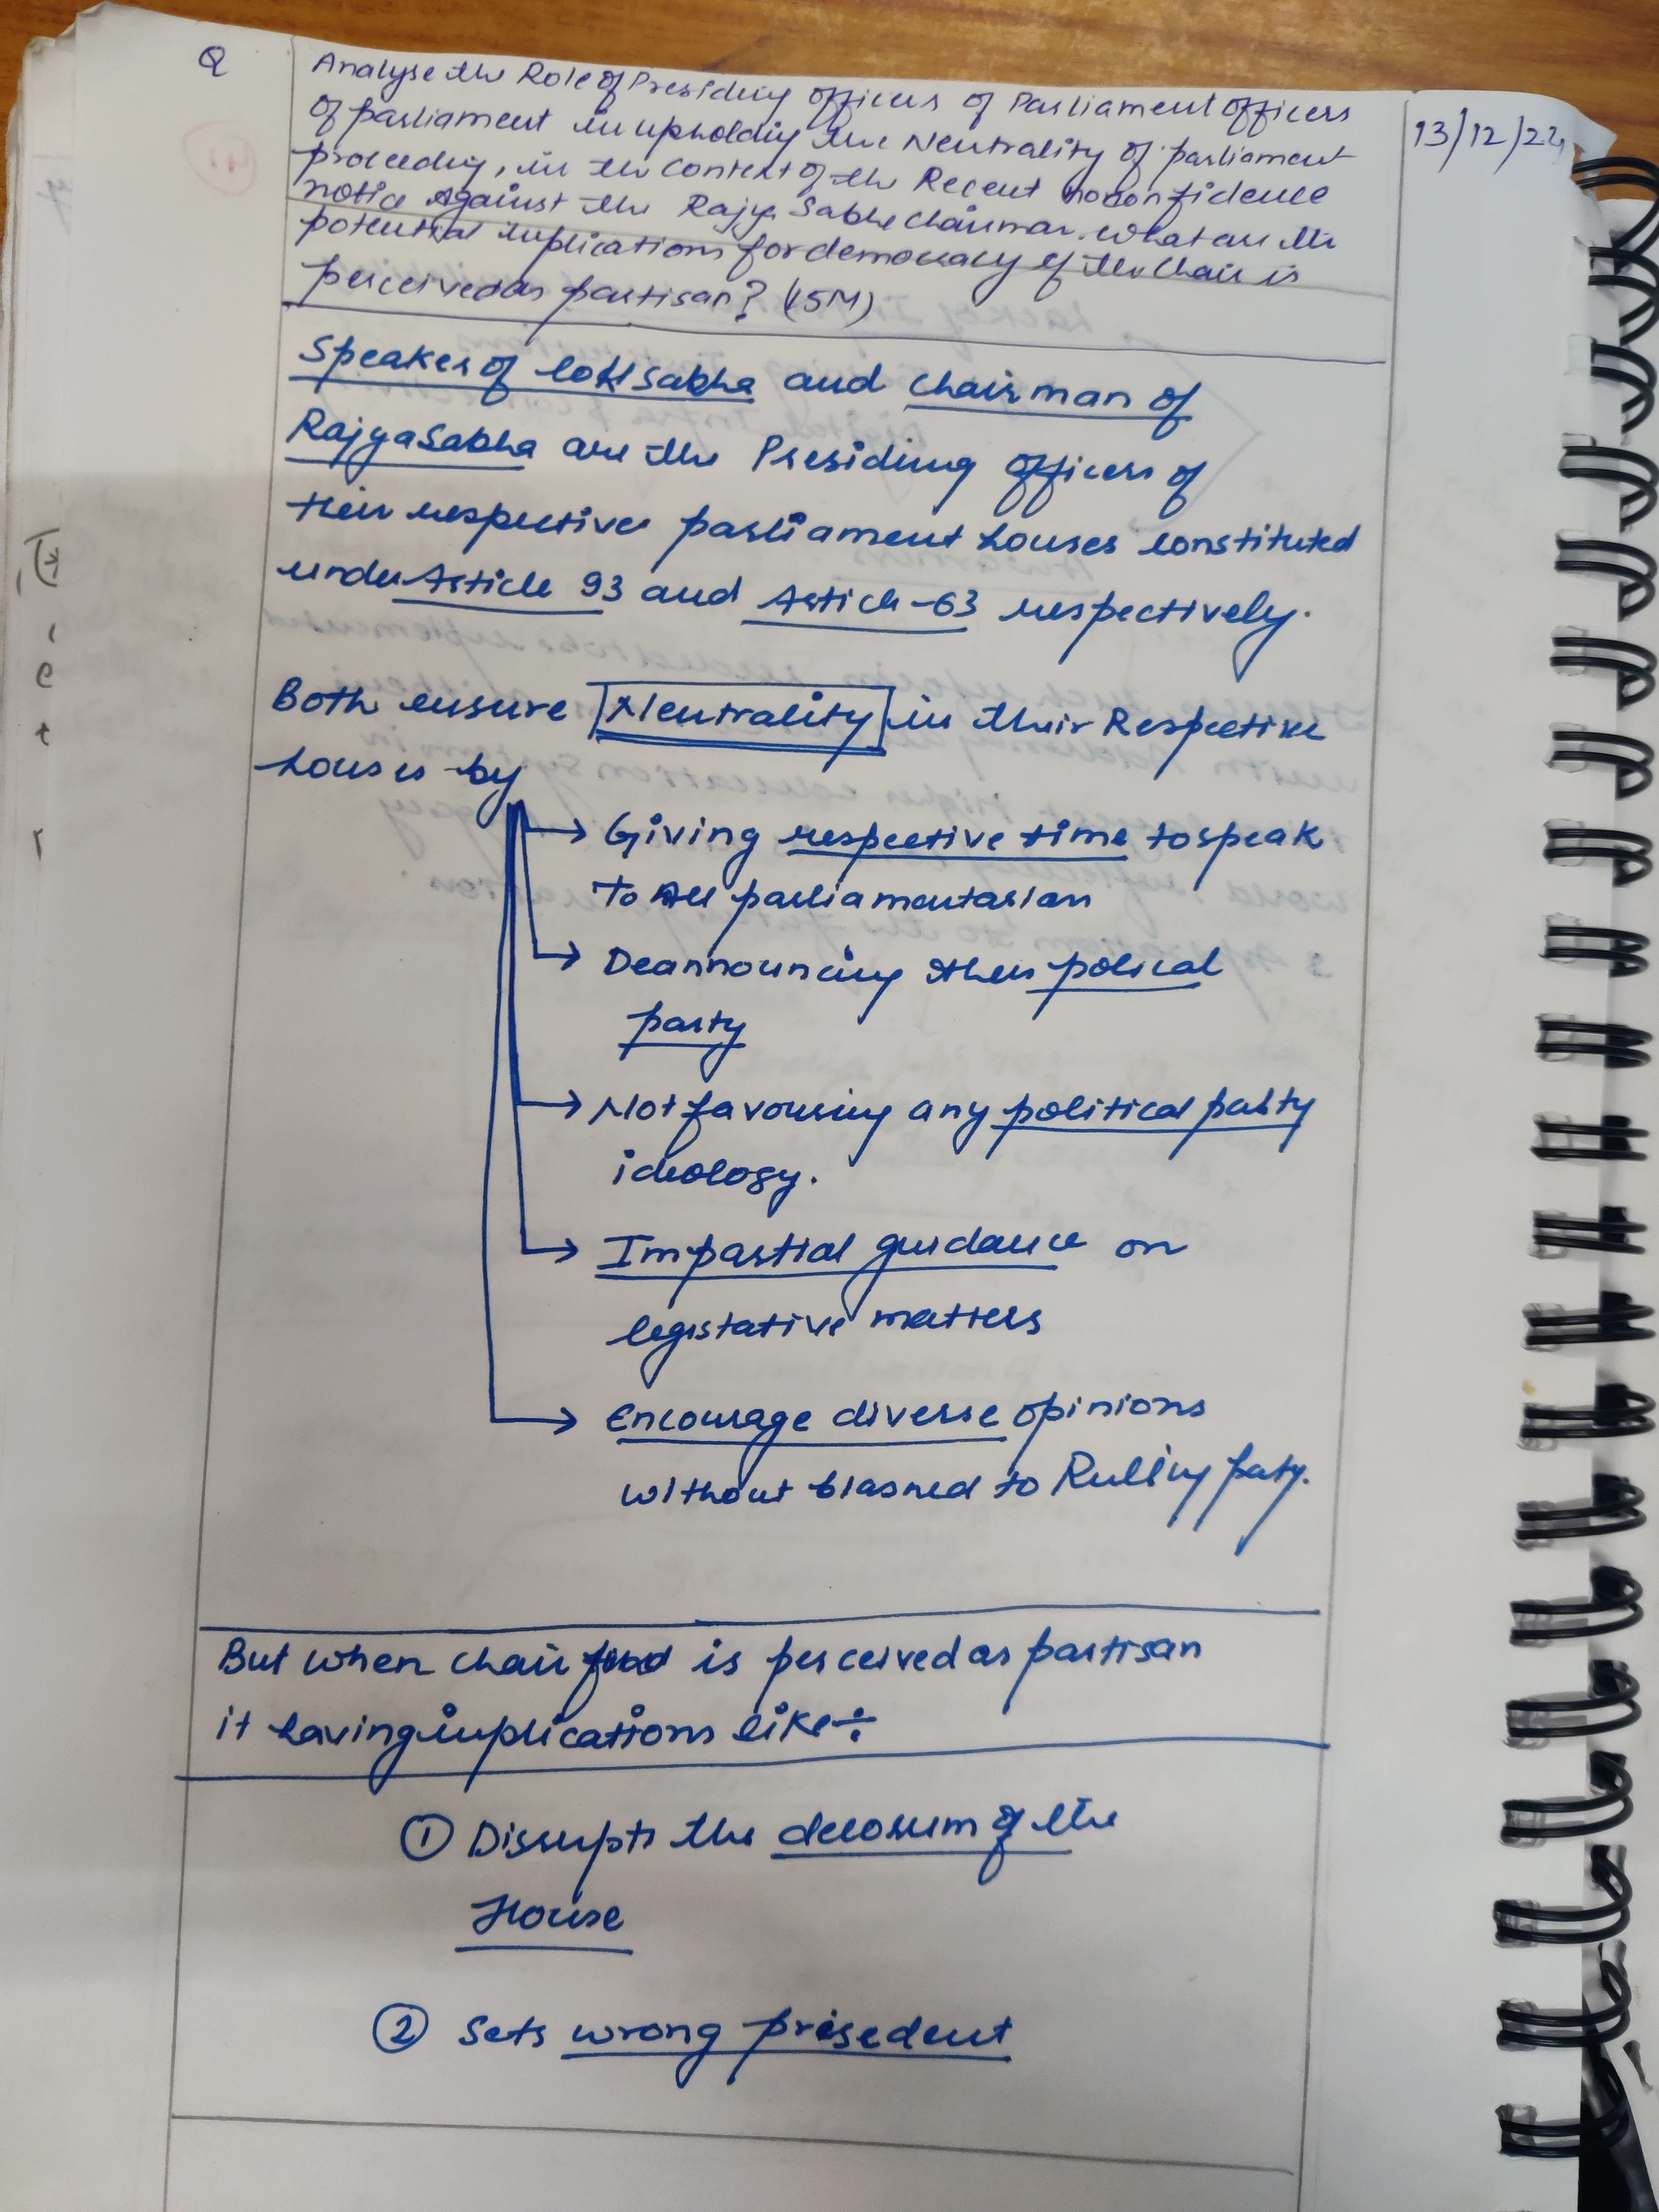 Q
Analyse the Role of Presiding officers of Parliament officers
of parliament in upholding the Neutrality of parliament
proceding, in the Context of the Recent noconfidence
notice against the Rajya Sabha Chairman. What are the
potential implications for democracy if the Chair is
perceived as partisan? (15M)
13/12/24
Speaker of lok sabha and Chairman of
Rajya Sabha are the Presiding officers of
their respective parliament houses constituted
under Article 93 and Article-63 respectively.
Both ensure Neutrality in their Respective
houses by
→ Giving respective time to speak
To All parliamentarian
→ Deannouncing their polical
party
→ Not favouring any political party
ideology.
→ Impartial guidance on
legistative matters
→ Encourage diverse opinions
without biasned to Rulling party.
But when chair is perceived as partisan
it having implications like÷
① Disrupts the decorum of the
House
② Sets wrong presedent